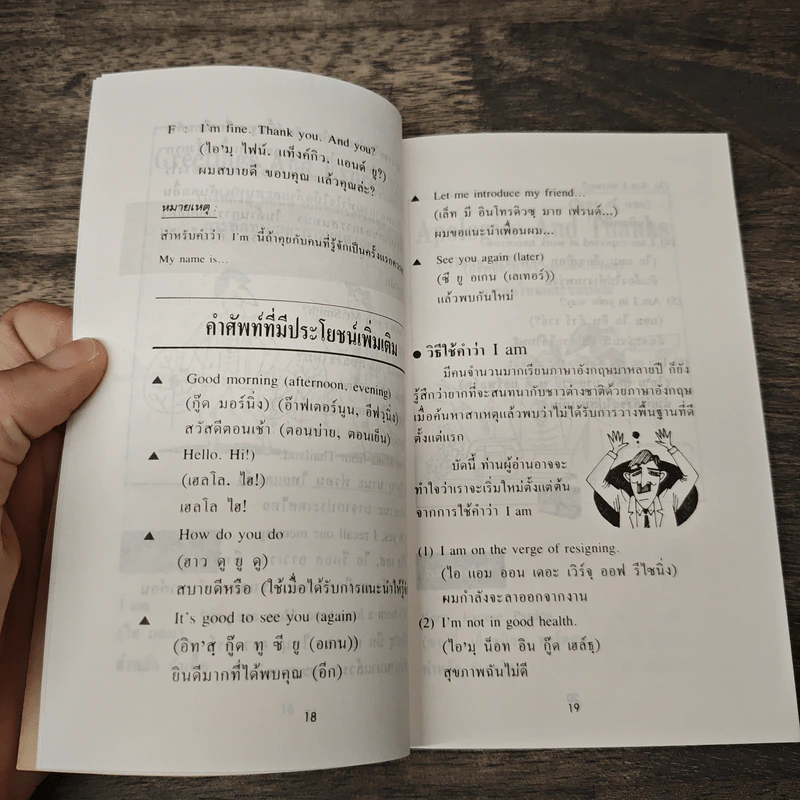 F : I'm fine. Thank you. And you?
(ไอ'มฺ ไฟน์. แท็งค์กิว. แอนด์ ยู?)
ผมสบายดี ขอบคุณ แล้วคุณล่ะ?
หมายเหตุ :
สำหรับคำว่า I'm นี้ถ้าคุยกับคนที่รู้จักเป็นครั้งแรก
My name is...
คำศัพท์ที่มีประโยชน์เพิ่มเติม
▲ Good morning (afternoon, evening)
(กู๊ด มอร์นิ่ง) (อ๊าฟเตอร์นูน, อีฟวนิ่ง)
สวัสดีตอนเช้า (ตอนบ่าย, ตอนเย็น)
▲ Hello. Hi!)
(เฮลโล. ไฮ!)
เฮลโล ไฮ!
▲ How do you do
(ฮาว ดู ยู ดู)
สบายดีหรือ (ใช้เมื่อได้รับการแนะนำให้รู้จัก
▲ It's good to see you (again)
(อิท'สฺ กู๊ด ทู ซี ยู (อเกน))
ยินดีมากที่ได้พบคุณ (อีก)
18
▲ Let me introduce my friend...
(เล็ท มี อินโทรดิวซฺ มาย เฟรนด์...)
ผมขอแนะนำเพื่อนผม...
▲ See you again (later)
(ซี ยู อเกน (เลเทอร์))
แล้วพบกันใหม่
● วิธีใช้คำว่า I am
มีคนจำนวนมากเรียนภาษาอังกฤษมาหลายปี ก็ยัง
รู้สึกว่ายากที่จะสนทนากับชาวต่างชาติด้วยภาษาอังกฤษ
เมื่อค้นหาสาเหตุแล้วพบว่าไม่ได้รับการวางพื้นฐานที่ดี
ตั้งแต่แรก
บัดนี้ ท่านผู้อ่านอาจจะ
ทำใจว่าเราจะเริ่มใหม่ตั้งแต่ต้น
จากการใช้คำว่า I am
(1) I am on the verge of resigning.
(ไอ แอม ออน เดอะ เวิร์จฺ ออฟ รีไซนิ่ง)
ผมกำลังจะลาออกจากงาน
(2) I'm not in good health.
(ไอ'มฺ น็อท อิน กู๊ด เฮล์ธฺ)
สุขภาพฉันไม่ดี
19